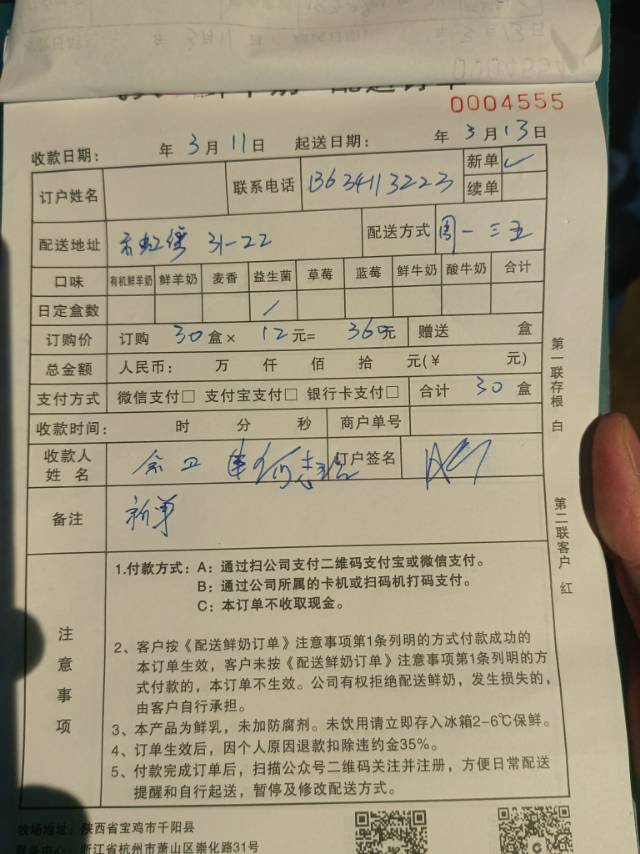 0004555
收款日期： 年 3月11日 起送日期： 年 3月13日
订户姓名 联系电话 13634113223 新单 ✓
续单
配送地址 31-22 配送方式 周一三五
口味 有机鲜羊奶 鲜羊奶 麦香 益生菌 草莓 蓝莓 鲜牛奶 酸牛奶 合计
日定盒数 /
订购价 订购 30盒× 12元= 360元 赠送 盒
总金额 人民币： 万 仟 佰 拾 元(￥ 元)
支付方式 微信支付□ 支付宝支付□ 银行卡支付□ 合计 30 盒
收款时间： 时 分 秒 商户单号
收款人
姓 名 订户签名
备注 新单
注意事项
1.付款方式：A：通过扫公司支付二维码支付宝或微信支付。
B：通过公司所属的卡机或扫码机打码支付。
C：本订单不收取现金。
2、客户按《配送鲜奶订单》注意事项第1条列明的方式付款成功的
本订单生效，客户未按《配送鲜奶订单》注意事项第1条列明的方
式付款的，本订单不生效。公司有权拒绝配送鲜奶，发生损失的，
由客户自行承担。
3、本产品为鲜乳，未加防腐剂。未饮用请立即存入冰箱2-6℃保鲜。
4、订单生效后，因个人原因退款扣除违约金35%。
5、付款完成订单后，扫描公众号二维码关注并注册，方便日常配送
提醒和自行起送，暂停及修改配送方式。
牧场地址：陕西省宝鸡市千阳县
服务中心：浙江省杭州市萧山区崇化路31号
第一联存根 白
第二联客户 红